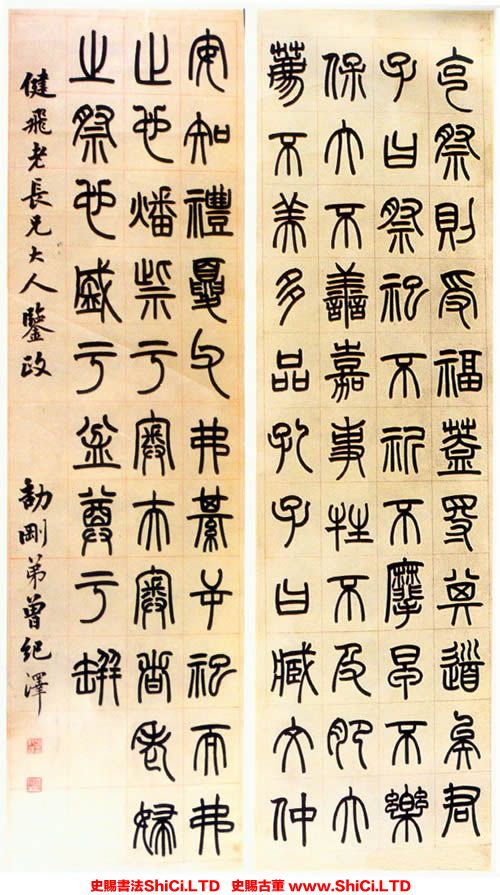 克祭則受福蓋得其道矣君
子曰祭祀不祈不麾蚤不樂
保大不善嘉事牲不及肥大
薦不美多品孔子曰臧文仲
安知禮夏父弗綦逆祀而弗
止也燔柴于奧夫奧者老婦
之祭也盛于盆尊于缾
健飛老長兄大人鑒政 劼剛弟曾紀澤
史賜書法ShiCi.LTD 史賜古董 www.ShiCi.LTD